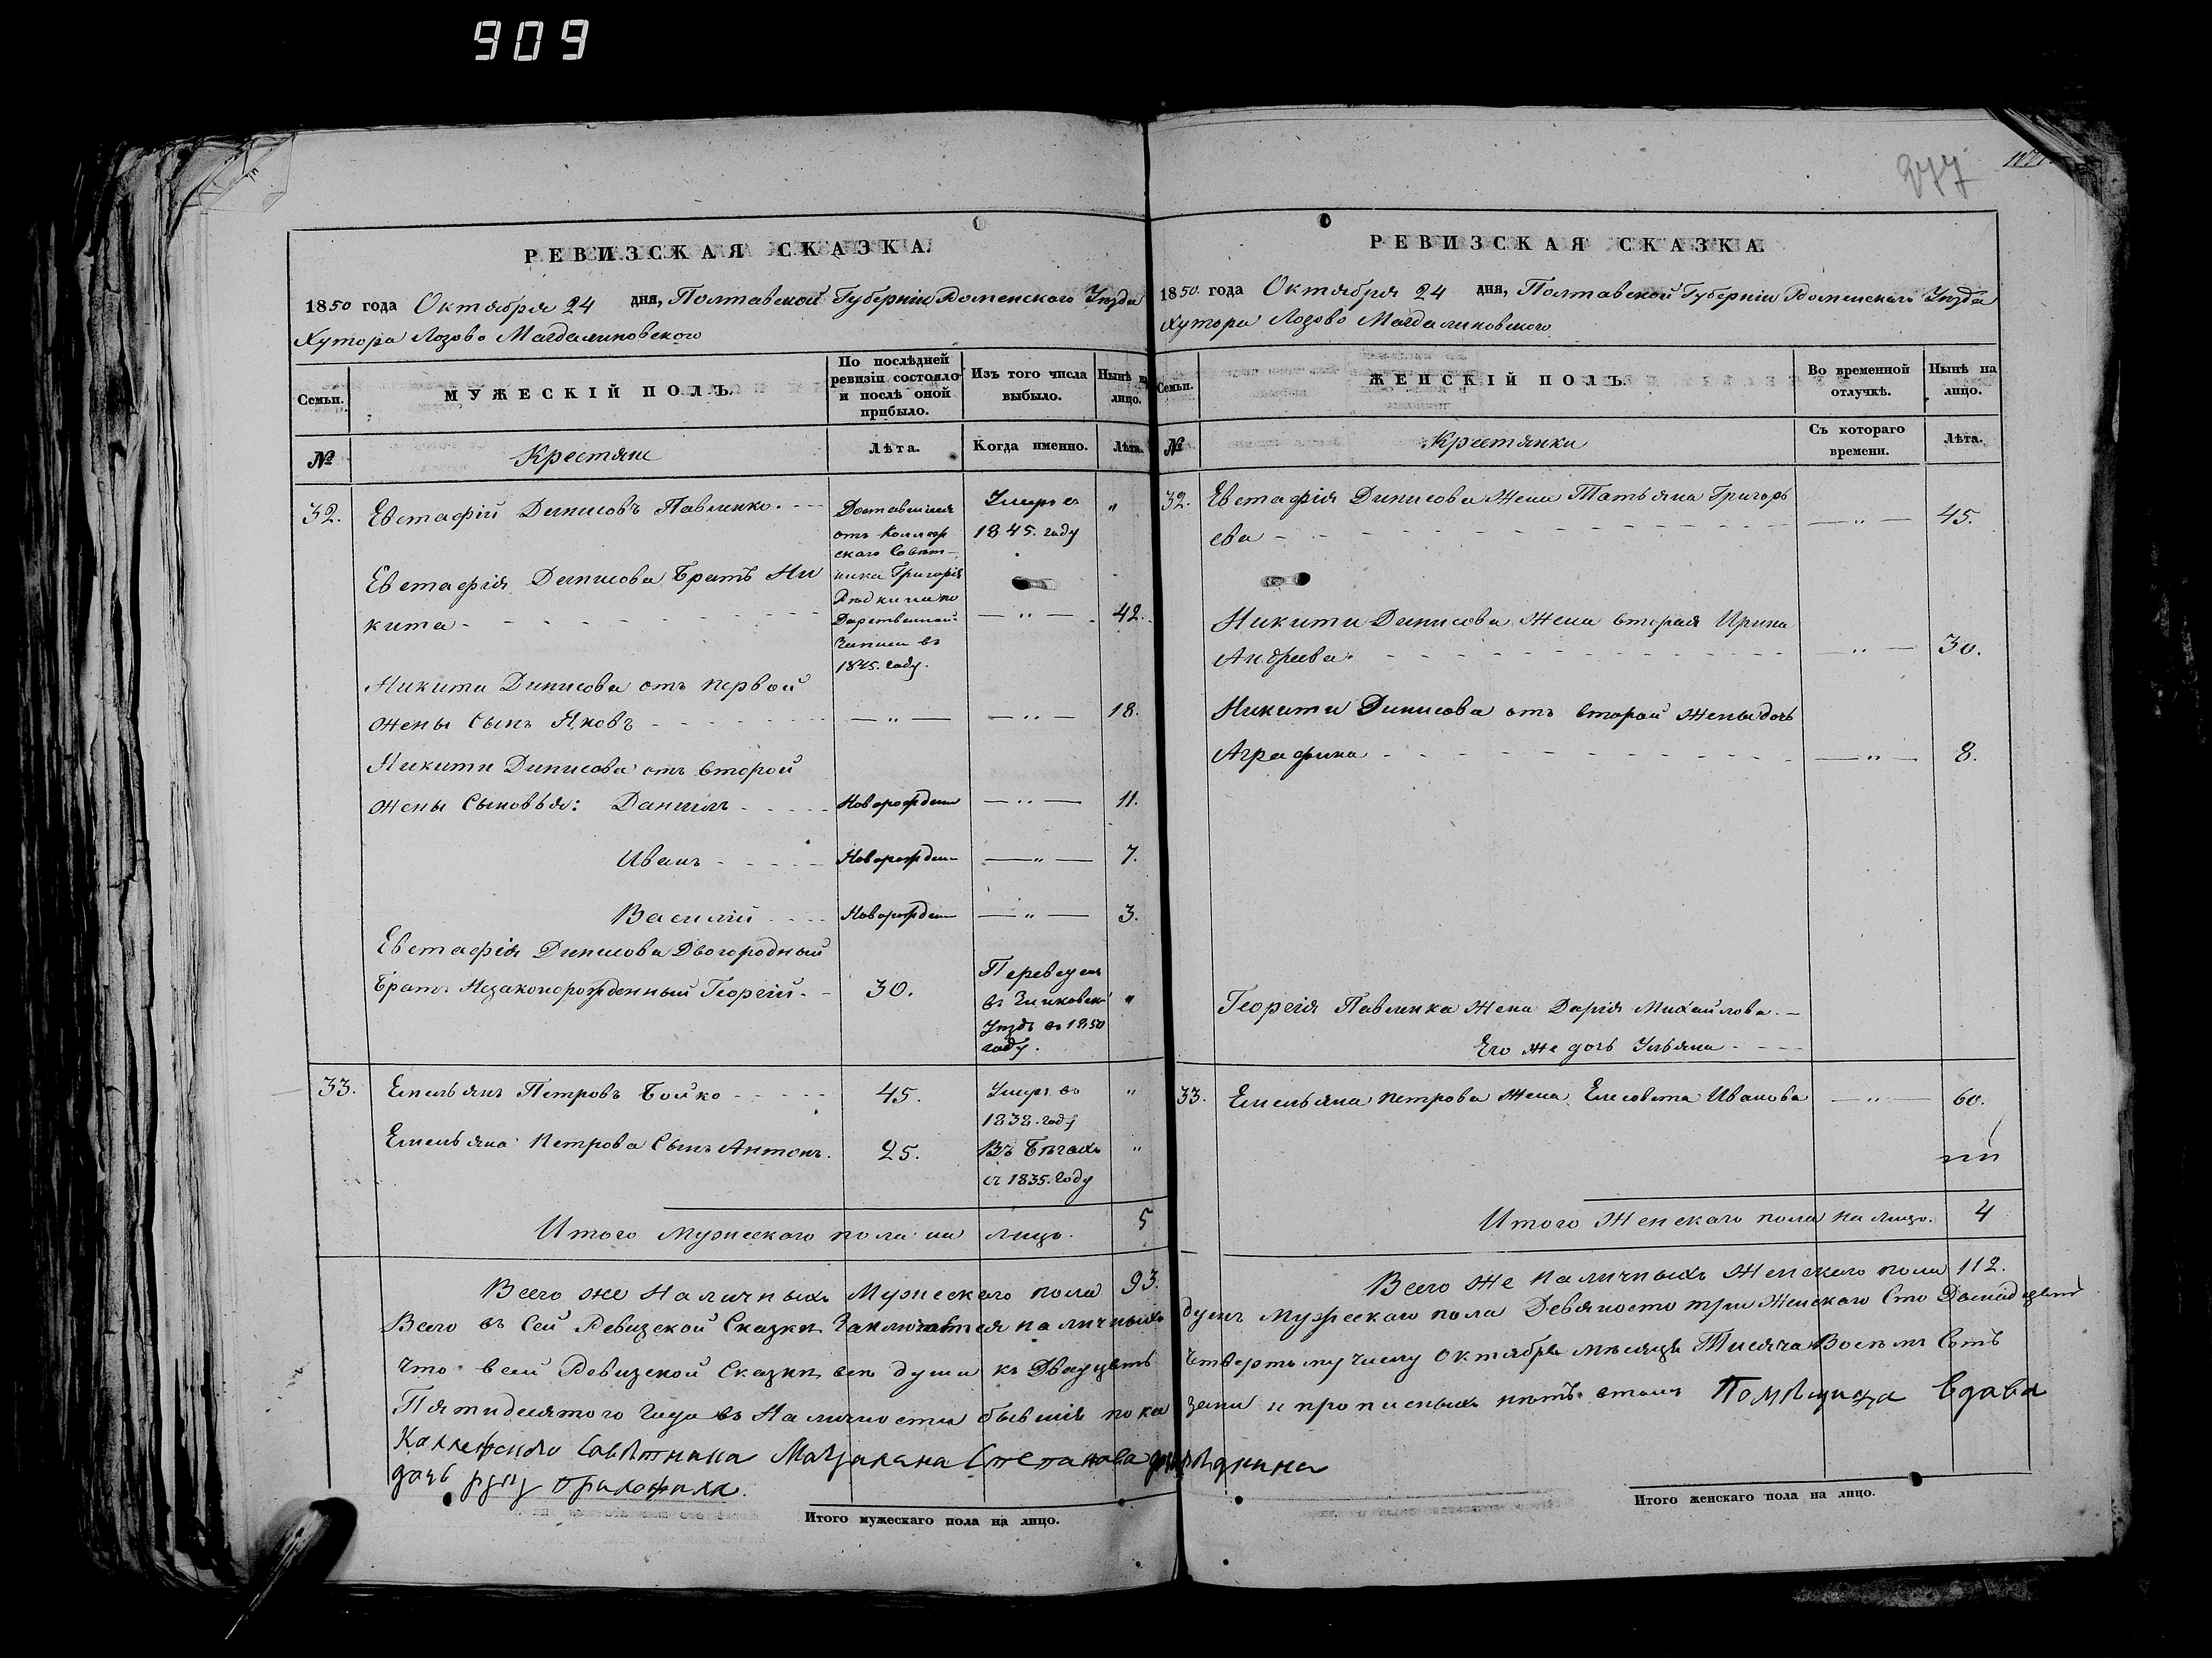 909
277
РЕВИЗСКАЯ СКАЗКА.
1850 года Октября 24 дня, Полтавской Губерніи Роменского Уѣзда
Хутора Лозово Магдалиновского
Семьи.
МУЖЕСКІЙ ПОЛЪ.
По послѣдней ревизіи состояло и послѣ оной прибыло.
Изъ того числа выбыло.
Нынѣ на лицо.
№
Крестяне
Лѣта.
Когда именно.
Лѣта.
32. Евстафій Денисовъ Павленко. Умеръ въ "
Доставшіися
отъ Коллеж
1845. году
скаго Совѣт-
Евстафія Денисова Братъ Ни
ника Григорія
кита - 42.
Дарственной
записи въ
1845. году.
Никиты Динисова отъ первой
жены Сынъ Яковъ - — " — — " — 18.
Никиты Динисова отъ второй
жены Сыновья: Данилъ Новорожден — " — 11.
Иванъ Новорожден — " — 7.
Василій Новорожден — " — 3.
Евстафія Динисова Двогородный
Братъ Незаконорожденный Георгій - 30. "
Переведенъ
въ Зинковскій
Уѣздъ въ 1850
году.
33. Емельянъ Петровъ Бойко 45. Умеръ въ "
1838. году
Емельяна Петрова Сынъ Антонъ. 25. Въ Бѣгахъ "
съ 1835. Году
Итого мужескаго пола на лицо. 5
Всего же Наличныхъ Мужескаго пола 93.
Всего въ Сей Ревизской Сказки Заключается наличныхъ
что всей Ревизской Сказки всѣ души къ Двадцать
Пятидесятого Года въ Наличности бывшія пока
Коллежского Совѣтника Магдалена Степанова дочь Рѣдкина
дочь руку приложила.
Итого мужескаго пола на лицо.
РЕВИЗСКАЯ СКАЗКА.
1850 года Октября 24 дня, Полтавской Губерніи Роменскаго Уѣзда
Хутора Лозово Магдалиновского
Семьи.
ЖЕНСКІЙ ПОЛЪ.
Во временной отлучкѣ.
Нынѣ на лицо.
№
Крестянки
Съ котораго времени.
Лѣта.
32. Евстафія Динисова Жена Татьяна Григорь
ева - — " — 45.
Никиты Динисова Жена вторая Ирина
Андреева. — " — 30.
Никиты Динисова отъ второй Жены дочь
Аграфина — " — 8.
Георгія Павленка Жена Дарія Михайлова. -
Его же дочь Ульяна
33. Емельяна Петрова Жена Елесовета Иванова — " — 60.
Итого Женскаго пола на лицо. 4
Всего Же Наличныхъ Женскаго пола 112.
душъ мужескаго пола Девяносто три Женскаго Сто Двенадцать
Четвертому числу Октября мѣсяца Тысяча Восемъ Сотъ
заны и прописныхъ нѣтъ. Помѣщица Вдова
Итого женскаго пола на лицо.